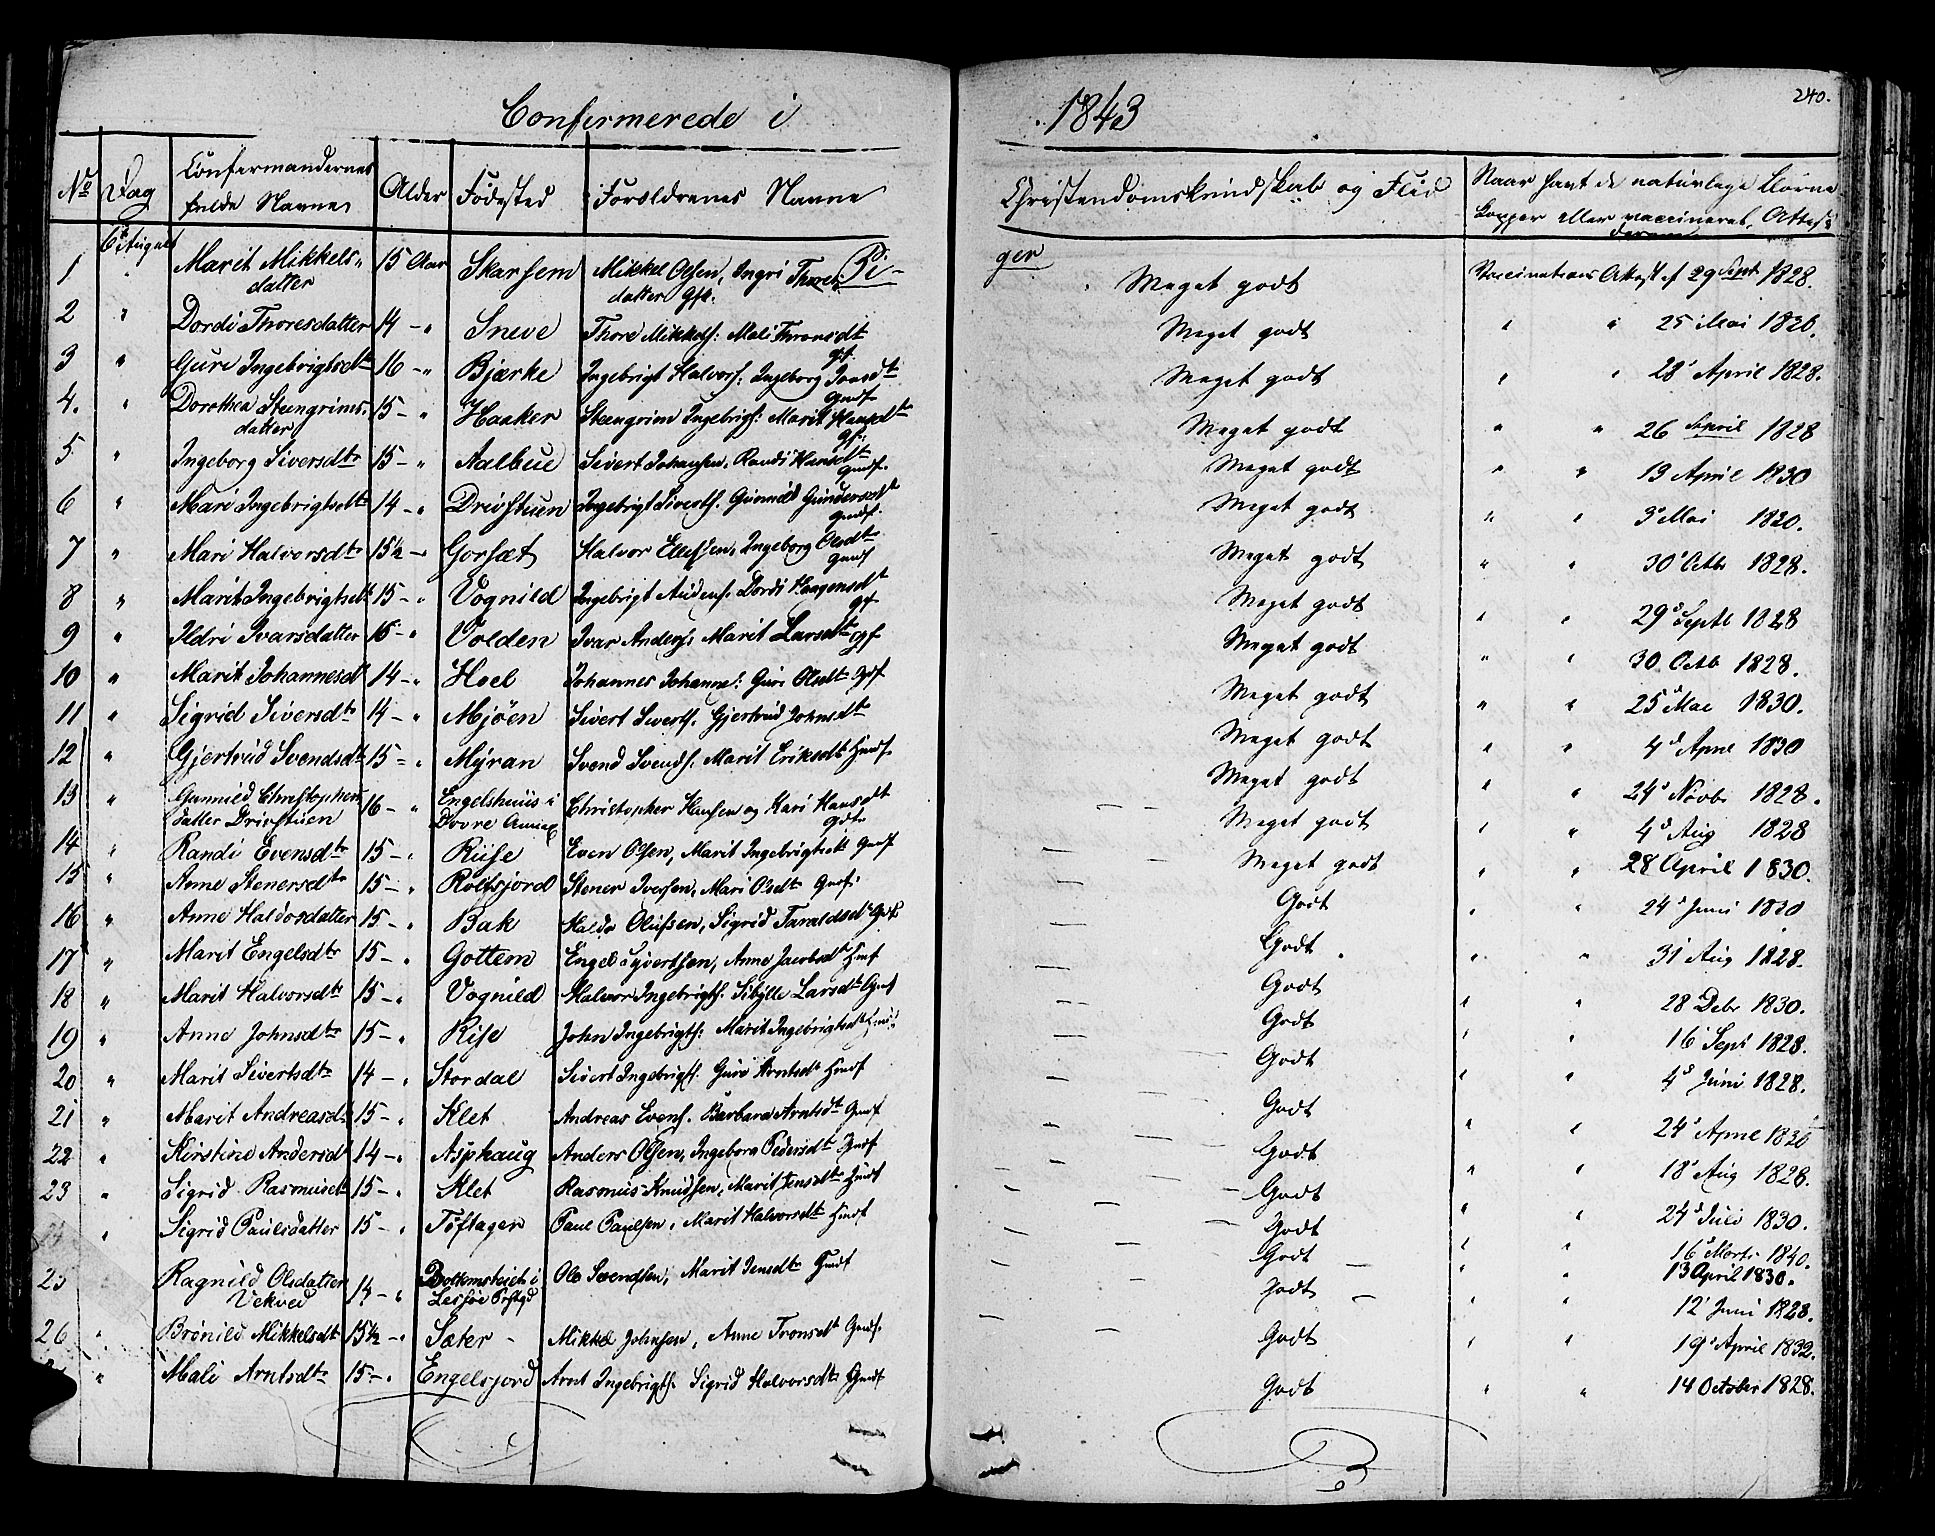 240.
Confirmerede i 1843
No Dag Confirmandernes fulde Navne Alder Fødested Forældrenes Navne Christendomskundskab og Flid Naar havt de naturlige Børne Kopper eller vaccineret, Attest derom
6te August
Pi- ger
1 " Marit Mikkels- datter 15 Aar Skarsem Mikkel Olsen, Ingri Thores datter Gf. Meget godt Vaccinations Attest af 29 Sept 1828.
2 " Dordi Thoresdatter 14 - " Sneve Thore Mikkels: Mali Thronsdt gf. Meget godt " " 25 Mai 1826.
3 " Guri Ingebrigtsdtr 16 - " Bjærke Ingebrigt Halvors: Ingeborg Jonsdtr Gmdf Meget godt " " 28 April 1828.
4. " Dorothea Steengrims- datter 15 - " Haaker Steengrim Ingebrigs: Marit Hansdtr gf. Meget godt " " 26 April 1828
5 " Ingeborg Siversdtr 15 - " Aalbue Sivert Johansen, Randi Hansdtr Gmdf. Meget godt " " 13 April 1830
6 " Mari Ingebrigtsdtr 14 - " Drivstuen Ingebrigt Siverts. Gunnild Gundersdt Gmdf. Meget godt " " 3d Mai 1830.
7 " Mari Halvorsdtr 15½ - " Gorsæt Halvor Ellefsen, Ingeborg Olsdtr Gmdf Meget godt " " 30 Octb 1828.
8 " Marit Ingebrigtsdt 15 - " Vognild Ingebrigt Audens. Dordi Haagensdt gf Meget godt " " 29d Septb 1828
9 " Ildri Ivarsdatter 15 - " Volden Ivar Anders: Marit Larsdtr gf Meget godt " " 30 Octb 1828.
10 " Marit Johannesd 14 - " Hoel Johannes Johannes: Guri Olsdtr Gdf Meget godt " " 25d Mai 1830.
11 " Sigrid Siversdtr 14 - " Mjøen Sivert Siverts. Gjertrud Johnsdtr Meget godt " " 4d April 1830
12 " Gjertrud Svendsdt 15 - " Myran Svend Svends. Marit Eriksdt Hmdf. Meget godt " " 24d Novbr 1828.
13 " Gunnild Christophers datter Drivstuen 16 - " Engelshuus i Dovre Annex Christopher Hansen og Kari Hansdt gdtr Meget godt " " 4d Aug 1828
14 " Randi Evensdtr 15 - " Riise Even Olsen, Marit Ingebrigtsdt Gmdf Meget godt " " 28 April 1830.
15 " Anne Stenersdtr 15 - " Rolfsjord Stener Iversen, Mari Olsdtr Gmdf. Godt " " 24d Juni 1830
16 " Anne Haldosdatter 15 - " Bak Haldo Olufsen, Sigrid Taraldsdt Gmdf Godt " " 31 Aug 1828.
17 " Marit Engelsdtr 15 - " Gottem Engel Syvertsen, Anne Jacobsdt Hmf Godt " " 28 Debr 1830.
18 " Marit Halvorsdtr 15 - " Vognild Halvor Ingebrigts. Sibylle Larsdtr Gmdf Godt " " 16 Sept 1828.
19 " Anne Johnsdtr 15 - " Rise John Ingebrigts: Marit Ingebrigtsdt Hmdf Godt " " 4d Juni 1828.
20 " Marit Sivertsdtr 14 - " Stordal Sivert Ingebrigts. Guri Arntsdt Hmdf Godt " " 24d April 1830
21 " Marit Andreasd 15 - " Klet Andreas Evens. Barbara Arntsdt Gmdf Godt " " 18d Aug 1828.
22 " Kirstine Andersd 14 - " Asphaug Anders Olsen, Ingeborg Pedersdt Gmdf Godt " " 24d Juli 1830.
23 " Sigrid Rasmusdt 15 - " Klet Rasmus Knudsen, Marit Jensdtr Hmdf Godt " " 16d Marts 1840.
" Sigrid Paulsdatter 15 - " Tøftager Paul Paulsen, Marit Halvorsdtr Hmdf Godt " " 13 April 1830.
25 Ragnild Olsdatter Vekved 14 - " i Lessøe Prstgd Ole Svendsen, Marit Jensdtr Hmdf Godt " " 12 Juni 1828.
26 " Brønild Mikkelsdt 15½ - " Sæter - Mikkel Johnsen, Anne Tronsdt Gmdf. Godt " " 19d April 1832.
" Mali Arntsdtr 15 - " Engelsjord Arnt Ingebrigts. Sigrid Halvorsdtr Gmdf Godt " " 14 October 1828.